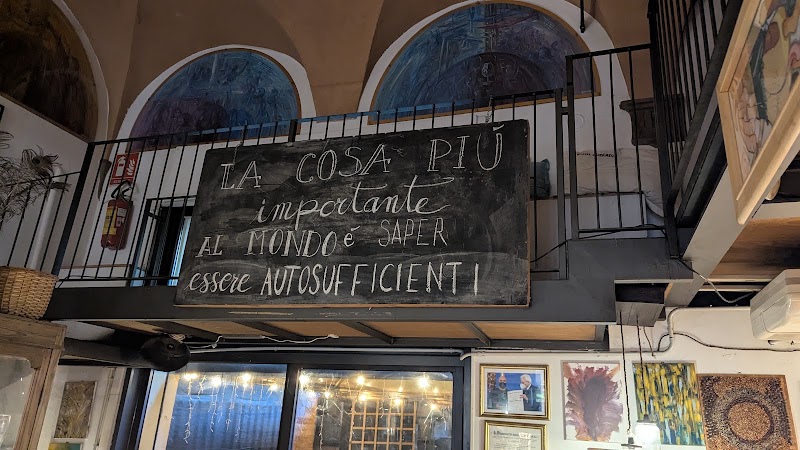 LA COSA PIÚ
importante
AL MONDO é SAPER
essere AUTOSUFFICIENTI